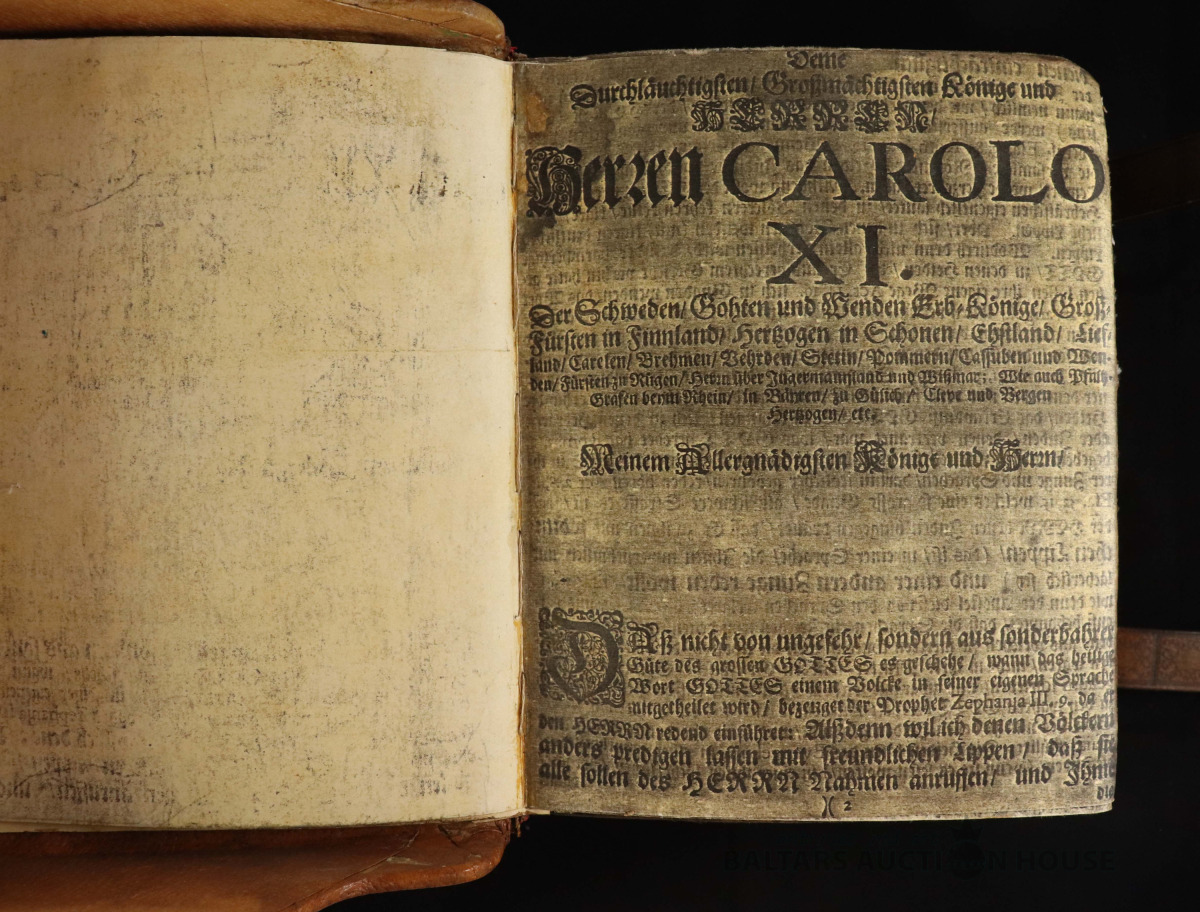 Deme
Durchläuchtigsten/ Großmächtigsten Könige und
HERREN/
Herren CAROLO
XI.
Der Schweden/ Gohten und Wenden Erb-Könige/ Groß-
Fürsten in Finnland/ Hertzogen in Schonen/ Ehstland/ Lief-
land/ Carelen/ Brehmen/ Vehrden/ Stetin/ Pommern/ Cassuben und Wen-
den/ Fürsten zu Rügen/ Herrn über Ingermannland und Wißmar; Wie auch Pfaltz-
Grafen beym Rhein/ in Bäyren/ zu Gülich/ Cleve und Bergen
Hertzogen/ etc.
Meinem Allergnädigsten Könige und Herrn/
DAß nicht von ungefehr/ sondern aus sonderbahrer
Güte des grossen GOTTES es geschehe/ wann das heilige
Wort GOTTES einem Volcke in seiner eigenen Sprache
mitgetheilet wird/ bezeuget der Prophet Zephanja III. 9. da er
den HERRN redend einführet: Alßdenn wil ich denen Völckern
anders predigen lassen mit freundlichen Lippen/ daß sie
alle sollen des HERRN Nahmen anruffen/ und Ihme
)( 2
die
BALTARS AUCTION HOUSE